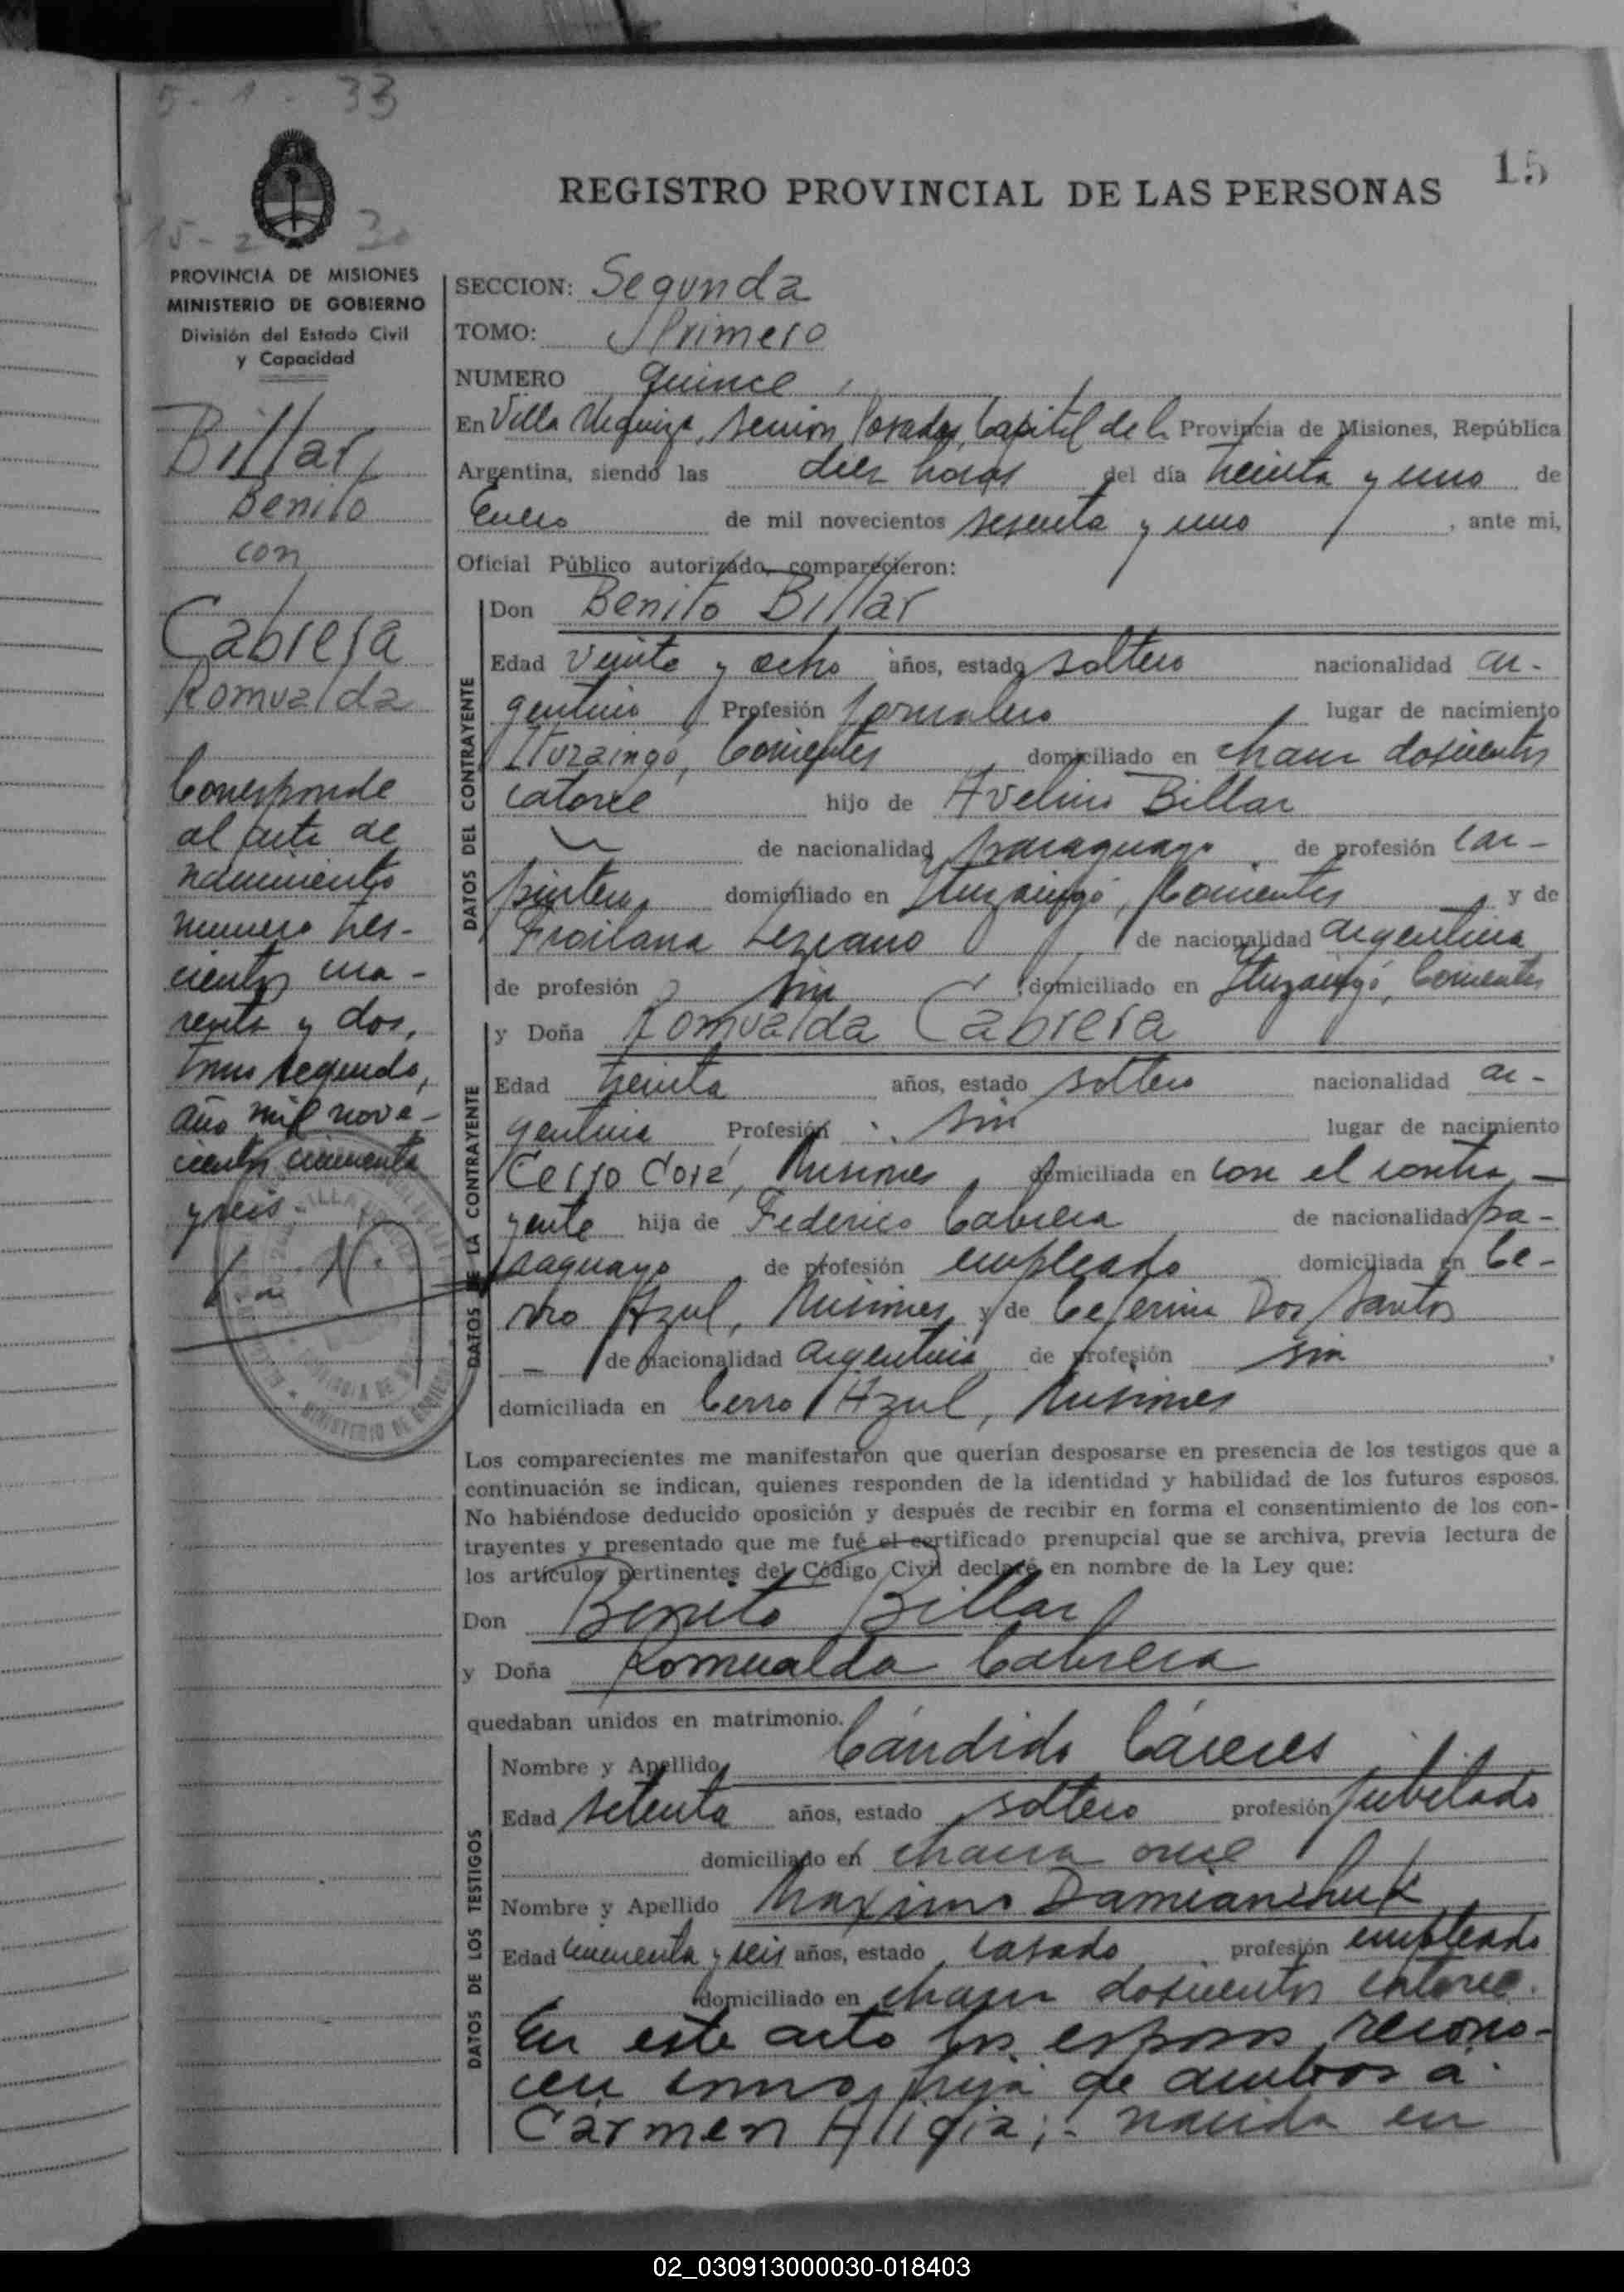 5 - 1 - 33
15
REGISTRO PROVINCIAL DE LAS PERSONAS
15 - 2 30
PROVINCIA DE MISIONES
MINISTERIO DE GOBIERNO
División del Estado Civil
y Capacidad
Billar,
Benito
con
Cabrera
Romualda
Corresponde
al acta de
nacimiento
numero tres-
cientos cua-
renta y dos,
tomo segundo,
año mil nove-
cientos cincuenta
y seis.
SECCION: Segunda
TOMO: Primero
NUMERO quince
En Villa Urquiza, sección Posadas, Capital de la Provincia de Misiones, República
Argentina, siendo las diez horas del día treinta y uno de
Enero de mil novecientos sesenta y uno, ante mi,
Oficial Público autorizado, comparecieron:
DATOS DEL CONTRAYENTE
Don Benito Billar
Edad veinte y ocho años, estado soltero nacionalidad ar-
gentino Profesión jornalero lugar de nacimiento
Ituzaingó, Corrientes domiciliado en chacra doscientos
catorce hijo de Avelino Billar
de nacionalidad paraguayo de profesión car-
pintero domiciliado en Ituzaingó, Corrientes y de
Froilana Lezcano de nacionalidad argentina
de profesión sin domiciliado en Ituzaingó, Corrientes
DATOS DE LA CONTRAYENTE
y Doña Romualda Cabrera
Edad treinta años, estado soltera nacionalidad ar-
gentina Profesión sin lugar de nacimiento
Cerro Corá, Misiones domiciliada en con el contra-
yente hija de Federico Cabrera de nacionalidad pa-
raguayo de profesión empleado domiciliada en Ce-
rro Azul, Misiones y de Ceferina Dos Santos
de nacionalidad argentina de profesión sin
domiciliada en Cerro Azul, Misiones
Los comparecientes me manifestaron que querían desposarse en presencia de los testigos que a
continuación se indican, quienes responden de la identidad y habilidad de los futuros esposos.
No habiéndose deducido oposición y después de recibir en forma el consentimiento de los con-
trayentes y presentado que me fué el certificado prenupcial que se archiva, previa lectura de
los artículos pertinentes del Código Civil declaré en nombre de la Ley que:
Don Benito Billar
y Doña Romualda Cabrera
quedaban unidos en matrimonio.
DATOS DE LOS TESTIGOS
Nombre y Apellido Cándido Cáceres
Edad setenta años, estado soltero profesión jubilado
domiciliado en chacra once
Nombre y Apellido Maximo Damianchuk
Edad cincuenta y seis años, estado casado profesión empleado
domiciliado en chacra doscientos catorce.
En este acto los esposos recono-
cen como hija de ambos a
Carmen Aligia; nacida en
02_030913000030-018403